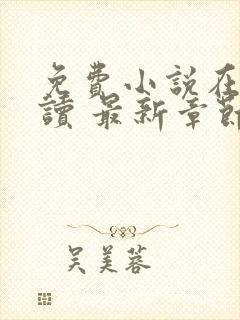 免費小說在
讀 最新章節
吴美蓉